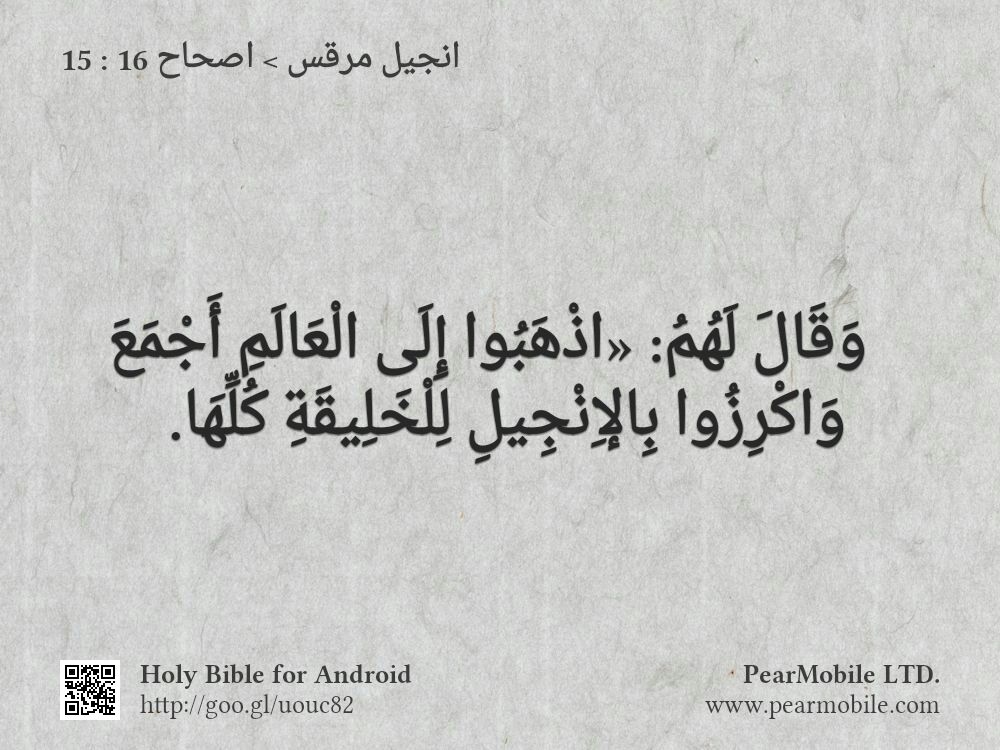 انجيل مرقس > اصحاح 16 : 15
وَقَالَ لَهُمُ: «اذْهَبُوا إِلَى الْعَالَمِ أَجْمَعَ
وَاكْرِزُوا بِالإِنْجِيلِ لِلْخَلِيقَةِ كُلِّهَا.
Holy Bible for Android
http://goo.gl/uouc82
PearMobile LTD.
www.pearmobile.com